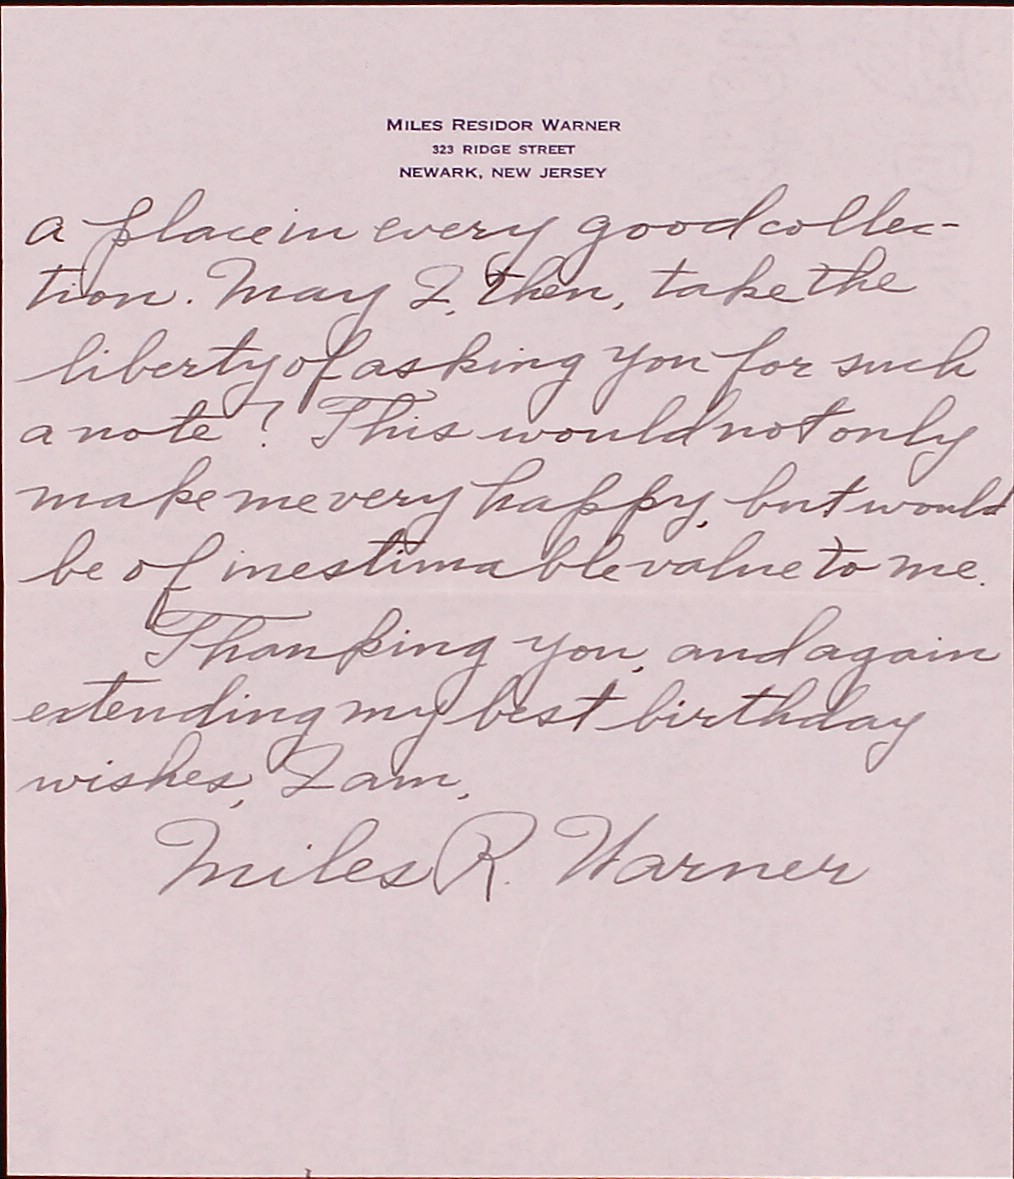 MILES RESIDOR WARNER
323 RIDGE STREET
NEWARK, NEW JERSEY
a place in every good collec-
tion. May I, then, take the
liberty of asking you for such
a note? This would not only
make me very happy, but would
be of inestimable value to me.
Thanking you, and again
extending my best birthday
wishes, I am,
Miles R. Warner